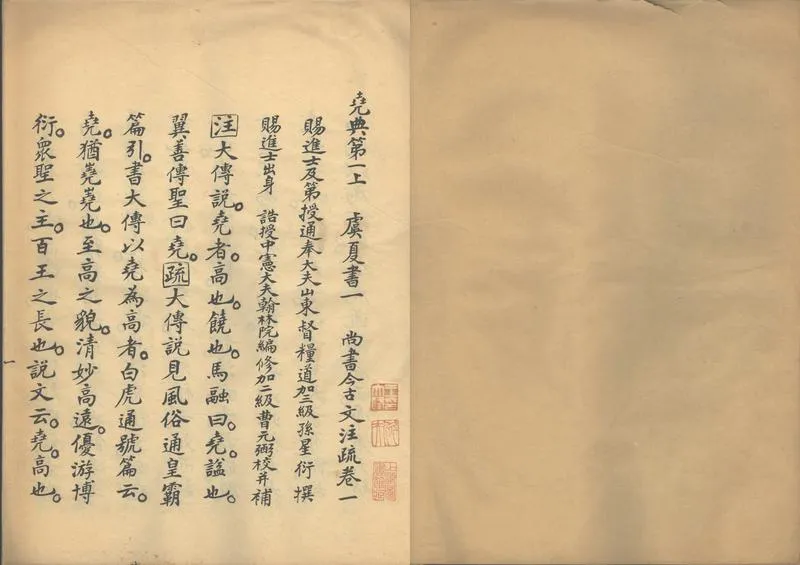 堯典第一上 虞夏書一 尚書今古文注疏卷一
賜進士及第授通奉大夫山東督糧道加三級孫星衍撰
賜進士出身 誥授中憲大夫翰林院編修加二級曹元弼校并補
注大傳說。堯者。高也。饒也。馬融曰。堯。諡也。
翼善傳聖曰堯。疏大傳說見風俗通皇霸
篇引。書大傳以堯為高者。白虎通號篇云。
堯。猶嶤嶤也。至高之貌。清妙高遠。優游博
衍。衆聖之主。百王之長也。說文云。堯。高也。
一